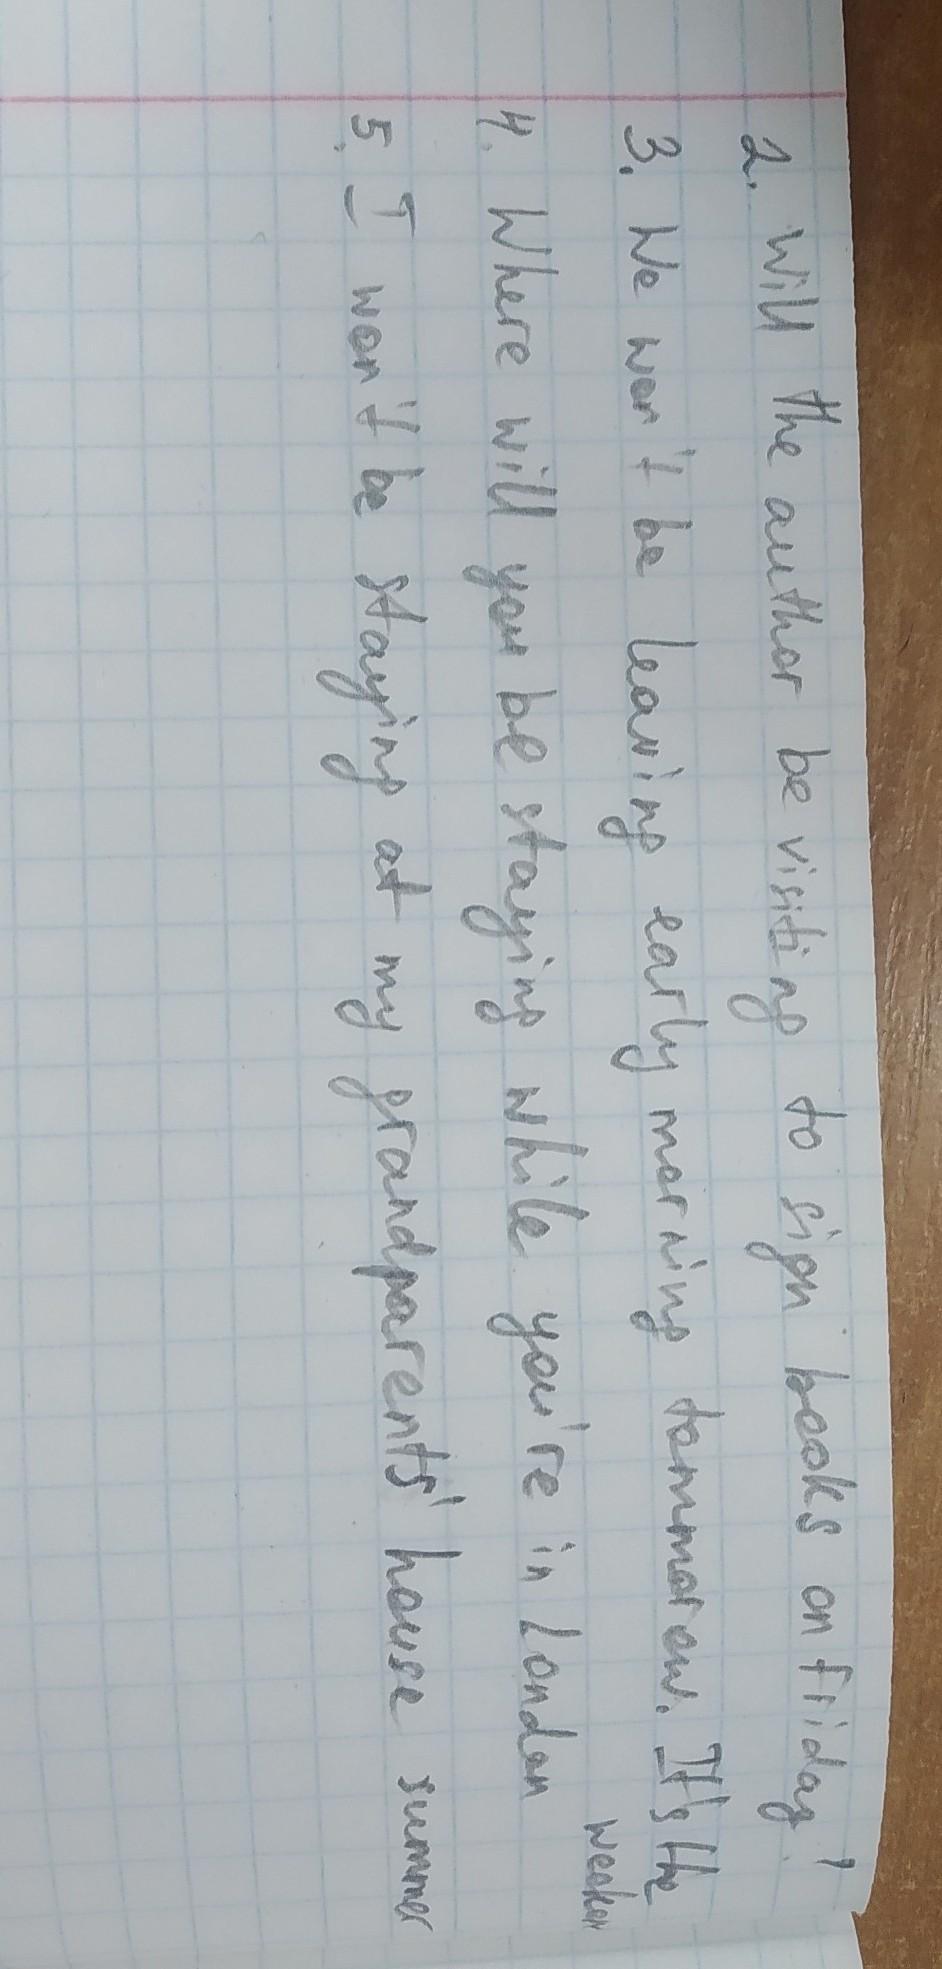 2. Will the author be visiting to sign books on friday?
3. We won't be leaving early morning tommorow. It's the
weaken
4. Where will you be staying while you're in London
5. I won't be staying at my grandparents' house summer